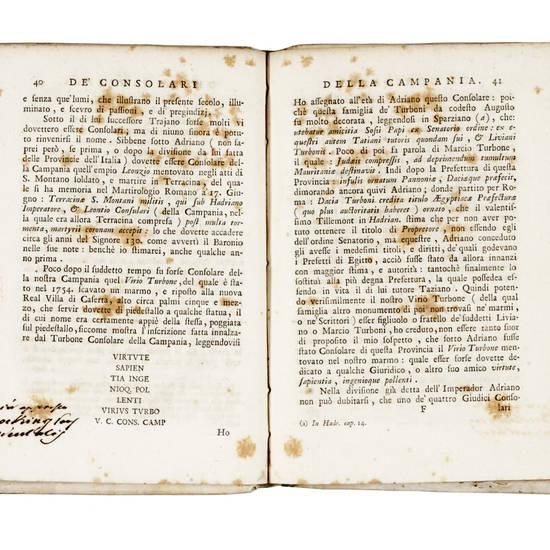 40 DE' CONSOLARI
e senza que'lumi, che illustrano il presente secolo, illu-
minato, e scevro di passioni, e di pregiudizj.
Sotto il di lui successore Trajano forse molti vi
dovettero essere Consolari, ma di niuno sinora è potuto
rinvenirsi il nome. Sibbene sotto Adriano (non
saprei però, se prima, o dopo la divisione da lui fatta
delle Provincie dell'Italia) dovette essere Consolare del-
la Campania quell'empio Leonzio mentovato negli atti di
S. Montano soldato, e martire in Terracina, del qua-
le si ha memoria nel Martirologio Romano a 17. Giu-
gno: Terracinæ S. Montani militis, qui sub Hadriano
Imperatore, & Leontio Consulari (della Campania, nel-
la quale era allora Terracina compresa) post multa tor-
menta, martyrii coronam accepit: lo che dovette accadere
circa gli anni del Signore 130. come avverti il Baronio
nelle sue note: benchè io stimarei, anche qualche an-
no prima.
Poco dopo il suddetto tempo fu forse Consolare del-
la nostra Campania quel Virio Turbone, del quale è sta-
to nel 1754. scavato un marmo, e riposto nella nuova
Real Villa di Caserta, alto circa palmi cinque e mez-
zo, che servir dovette di piedestallo a qualche statua, il
di cui nome era certamente appiè della stessa, poggiata
sul piedestallo, siccome mostra l'inscrizione fatta innalza-
re dal Turbone Consolare della Campania, leggendovisi
VIRTVTE
SAPIEN
TIA INGE
NIOQ, POL
LENTI
VIRIVS TVRBO
V. C. CONS. CAMP
Ho
DELLA CAMPANIA. 41
Ho assegnato all'età di Adriano questo Consolare: poi-
chè questa famiglia de' Turboni da codesto Augusto
fu molto decorata, leggendosi in Sparziano (a), che:
utebatur amicitia Sosii Papi ex Senatorio ordine: ex e-
questri autem Tatiani tutoris quondam sui, & Liviani
Turbonis. Poco di poi, fa parola di Marcio Turbone,
il quale: Judæis compressit, ad deprimendum tumultum
Mauritaniæ destinavit. Indi dopo la Prefettura di questa
Provincia: infulis ornatum Pannoniæ, Daciæque præfecit,
dimorando ancora quivi Adriano; donde partito per Ro-
ma: Dacia Turboni credita titulo Ægypticæ Præfecturæ
(quo plus auctoritatis haberet) ornato, che il valentis-
simo Tillemont in Hadrian. stima che per non aver po-
tuto ottenere il titolo di Propretore, non essendo egli
dell'ordine Senatorio, ma equestre, Adriano conceduto
gli avesse i medesimi titoli, e diritti, de' quali godevano
i Prefetti di Egitto, acciò fusse stato da allora innanzi
con maggior stima, e autorità: tantochè finalmente lo
sostituì alla più degna Prefettura, la quale possedeva es-
sendo in vita di lui tutore Taziano, Quindi poten-
do verisimilmente il nostro Virio Turbone (della qual
famiglia altro monumento di poi non trovasi ne' marmi, o
ne'Scrittori) esser figliuolo o fratello de'suddetti Livia-
no o Marcio Turboni, ho creduto, non essere tanto suor
di proposito il mio sospetto, che sotto Adriano fusse
stato Consolare di questa Provincia il Virio Turbone men-
tovato nel nostro marmo: quale esser forse dovette de-
dicato a qualche Giuridico, o altro suo amico virtute,
sapientia, ingenioque pollenti.
Nella divisione già detta dell'Imperador Adriano
non può dubitarsi, che uno de'quattro Giudici Conso-
F lari
(a) In Hadr. cap. 14.